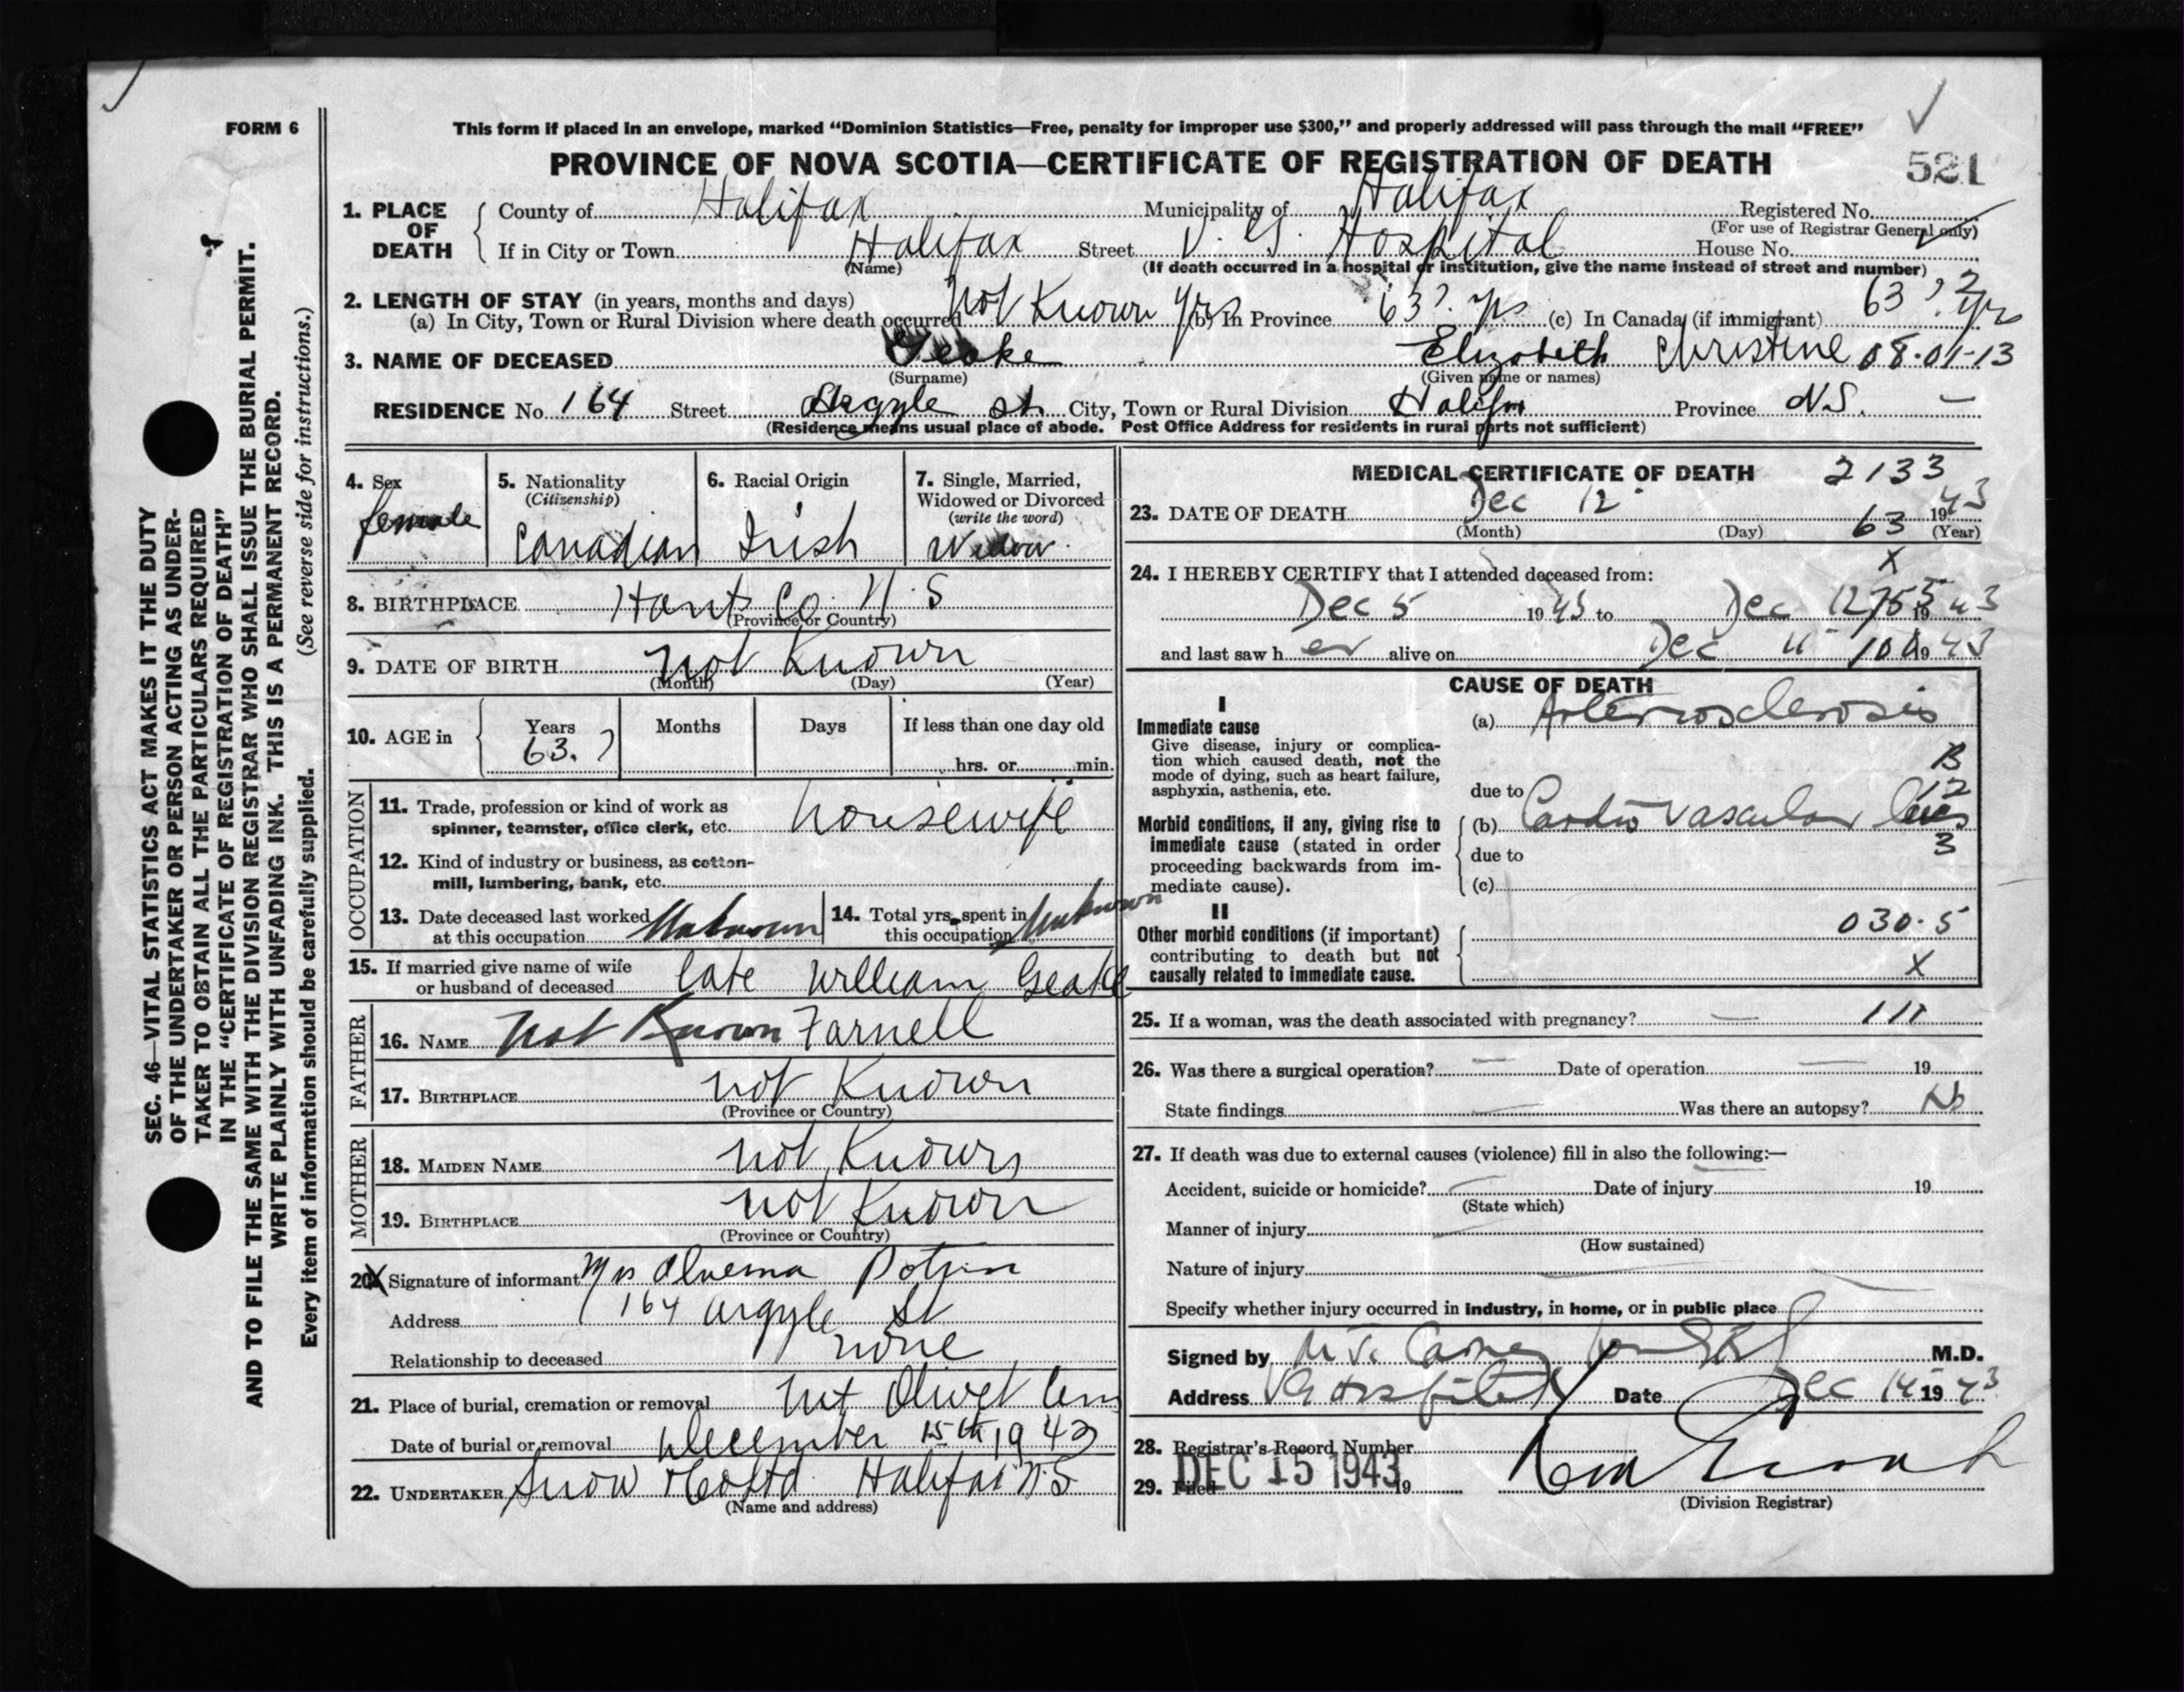 FORM 6
This form if placed in an envelope, marked "Dominion Statistics—Free, penalty for improper use $300," and properly addressed will pass through the mail "FREE"
PROVINCE OF NOVA SCOTIA—CERTIFICATE OF REGISTRATION OF DEATH
521
1. PLACE OF DEATH
County of Halifax Municipality of Halifax Registered No.
(For use of Registrar General only)
If in City or Town Halifax Street V. G. Hospital House No.
(Name) (If death occurred in a hospital or institution, give the name instead of street and number)
2. LENGTH OF STAY (in years, months and days)
(a) In City, Town or Rural Division where death occurred not Known yrs (b) In Province 63? yrs (c) In Canada (if immigrant) 63 ? yrs
3. NAME OF DECEASED Geake Elizabeth Christine 08-01-13
(Surname) (Given name or names)
RESIDENCE No. 164 Street Argyle st. City, Town or Rural Division Halifax Province N.S. —
(Residence means usual place of abode. Post Office Address for residents in rural parts not sufficient)
4. Sex female
5. Nationality (Citizenship) Canadian
6. Racial Origin Irish
7. Single, Married, Widowed or Divorced (write the word) Widow
8. BIRTHPLACE Hants Co. N.S
(Province or Country)
9. DATE OF BIRTH not Known
(Month) (Day) (Year)
10. AGE in Years 63. ? Months Days If less than one day old
hrs. or min.
OCCUPATION
11. Trade, profession or kind of work as
spinner, teamster, office clerk, etc. housewife
12. Kind of industry or business, as cotton-
mill, lumbering, bank, etc.
13. Date deceased last worked at this occupation Unknown
14. Total yrs. spent in this occupation Unknown
15. If married give name of wife
or husband of deceased late William Geake
FATHER
16. NAME not Known Farnell
17. BIRTHPLACE not Known
(Province or Country)
MOTHER
18. MAIDEN NAME not Known
19. BIRTHPLACE not Known
(Province or Country)
20. X Signature of informant Mrs
Address 164 Argyle St
Relationship to deceased none
21. Place of burial, cremation or removal Mt Olivet Cem
Date of burial or removal December 15th 1943
22. UNDERTAKER Snow & Co Ltd. Halifax N.S
(Name and address)
MEDICAL CERTIFICATE OF DEATH 2133
23. DATE OF DEATH Dec 12 1943
(Month) (Day) (Year)
63
X
24. I HEREBY CERTIFY that I attended deceased from:
Dec 5 1943 to Dec 12 1943
and last saw h er alive on Dec 11 1943
CAUSE OF DEATH
I
Immediate cause
Give disease, injury or complica-
tion which caused death, not the
mode of dying, such as heart failure,
asphyxia, asthenia, etc.
(a) Arteriosclerosis
B
12
due to
Morbid conditions, if any, giving rise to
immediate cause (stated in order
proceeding backwards from im-
mediate cause).
(b) Cardio Vascular lues
3
due to
(c)
II
Other morbid conditions (if important)
contributing to death but not
causally related to immediate cause.
030.5
X
25. If a woman, was the death associated with pregnancy? — 111
26. Was there a surgical operation? — Date of operation — 19
State findings — Was there an autopsy? No
27. If death was due to external causes (violence) fill in also the following:—
Accident, suicide or homicide? — Date of injury 19
(State which)
Manner of injury
(How sustained)
Nature of injury
Specify whether injury occurred in industry, in home, or in public place
Signed by M.D.
Address V G Hospital Date Dec 14 1943
28. Registrar's Record Number
29. Filed DEC 15 1943 19
(Division Registrar)
SEC. 46—VITAL STATISTICS ACT MAKES IT THE DUTY
OF THE UNDERTAKER OR PERSON ACTING AS UNDER-
TAKER TO OBTAIN ALL THE PARTICULARS REQUIRED
IN THE "CERTIFICATE OF REGISTRATION OF DEATH"
AND TO FILE THE SAME WITH THE DIVISION REGISTRAR WHO SHALL ISSUE THE BURIAL PERMIT.
WRITE PLAINLY WITH UNFADING INK. THIS IS A PERMANENT RECORD.
Every item of information should be carefully supplied. (See reverse side for instructions.)